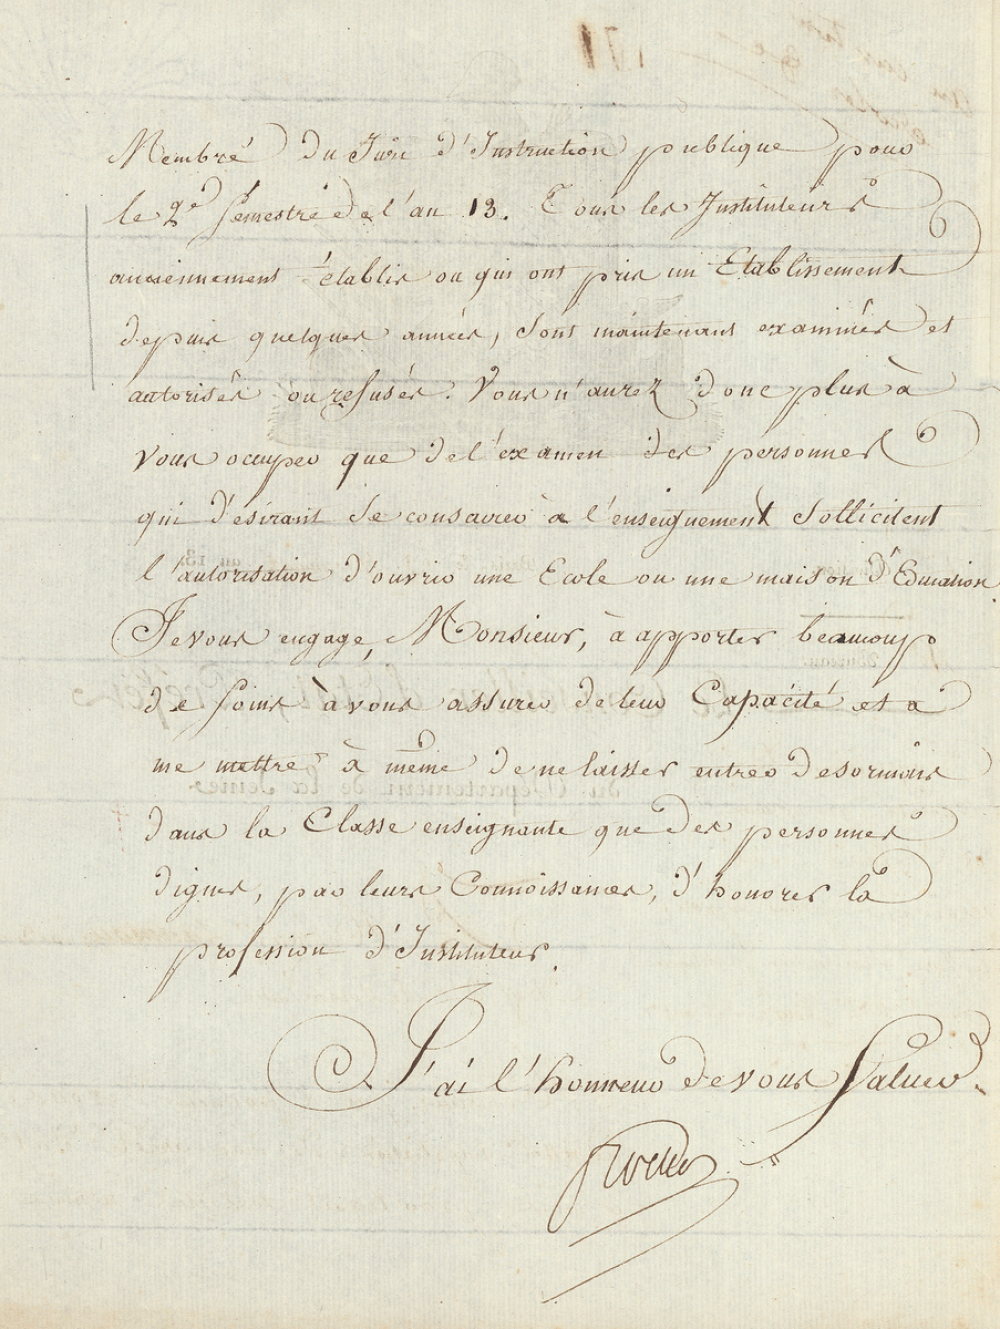 Membre du Juri d'Instruction publique pour
le 2e semestre de l'an 13. Tous les Instituteurs
anciennement établis ou qui ont pris un Etablissement
depuis quelques années, sont maintenant examinés et
autorisés ou refusés. Vous n'aurez donc plus à
vous occuper que de l'examen des personnes
qui désirant se consacrer à l'enseignement sollicitent
l'autorisation d'ouvrir une Ecole ou une maison d'Education.
Je vous engage, Monsieur, à apporter beaucoup
de soins à vous assurer de leur Capacité et a
me mettre à même de ne laisser entrer desormais
dans la Classe enseignante que des personnes
dignes, par leurs Connoissances, d'honorer la
profession d'Instituteur.
J'ai l'honneur de vous saluer.